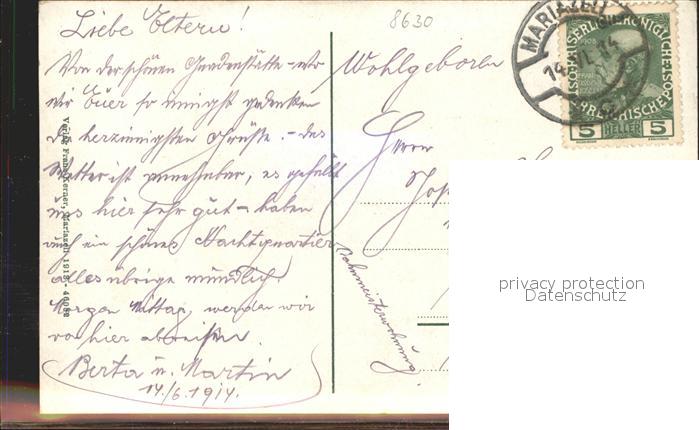 Liebe Eltern!
Von der schönen Gnadenstätte wo
wir Euer so innigst gedenken
die herzinnigsten Grüße. – das
Wetter ist annehmbar, es gefällt
uns hier sehr gut – haben
auch ein schönes Nachtquartier
alles übrige mündlich.
Morgen Mittag, werden wir
von hier abreisen.
Berta u. Martin
14./6. 1914.
Verlag Franz Kerner, Mariazell 1913
8630
Wohlgeboren
Herrn
Bahnmeisterwohnung
MARIAZELL
14 VI 14
KAISERLICHE KÖNIGLICHE
ÖSTERREICHISCHE POST
5 HELLER 5
privacy protection
Datenschutz